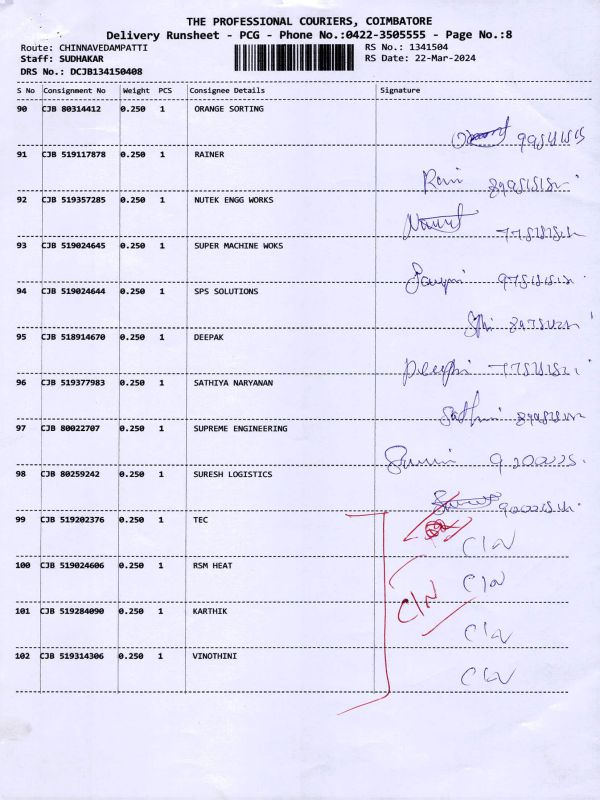 THE PROFESSIONAL COURIERS, COIMBATORE
Delivery Runsheet - PCG - Phone No.:0422-3505555 - Page No.:8
Route: CHINNAVEDAMPATTI RS No.: 1341504
Staff: SUDHAKAR RS Date: 22-Mar-2024
DRS No.: DCJB134150408
S No Consignment No Weight PCS Consignee Details Signature
90 CJB 80314412 0.250 1 ORANGE SORTING
91 CJB 519117878 0.250 1 RAINER
92 CJB 519357285 0.250 1 NUTEK ENGG WORKS
93 CJB 519024645 0.250 1 SUPER MACHINE WOKS
94 CJB 519024644 0.250 1 SPS SOLUTIONS
95 CJB 518914670 0.250 1 DEEPAK
96 CJB 519377983 0.250 1 SATHIYA NARYANAN
97 CJB 80022707 0.250 1 SUPREME ENGINEERING
98 CJB 80259242 0.250 1 SURESH LOGISTICS
99 CJB 519202376 0.250 1 TEC C/N
100 CJB 519024606 0.250 1 RSM HEAT C/N
C/N
101 CJB 519284090 0.250 1 KARTHIK C/N
102 CJB 519314306 0.250 1 VINOTHINI C/N